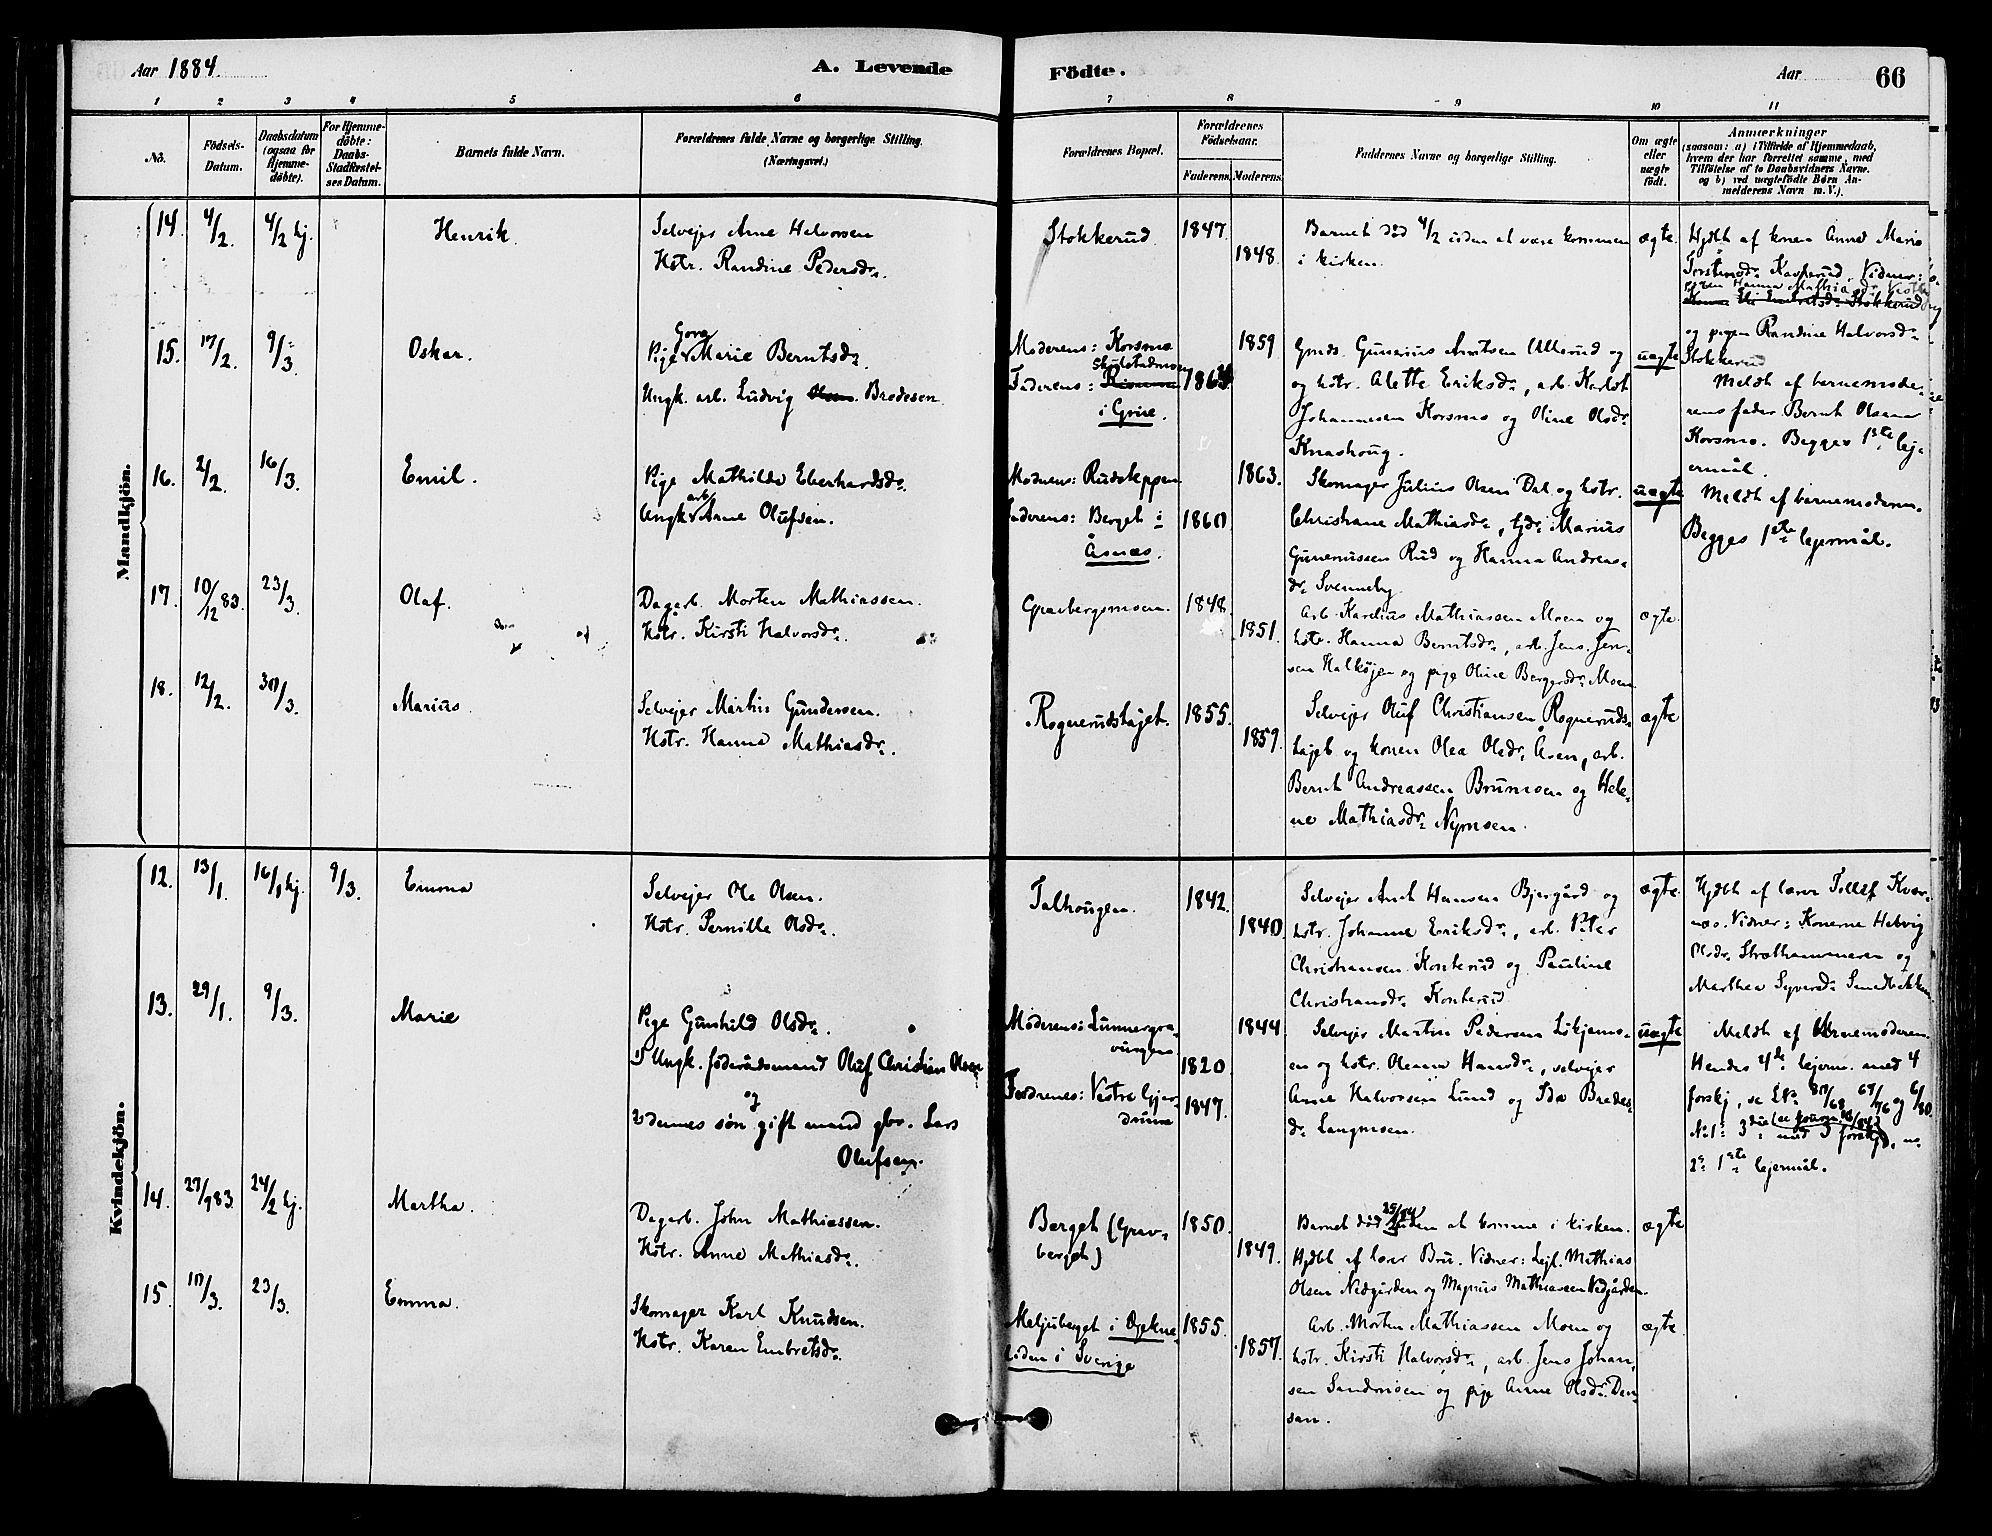 Aar 1884.
A. Levende
Födte.
Aar
66
1 2 3 4 5 6 7 8 9 10 11
No.
Födsels-
Datum.
Daabsdatum
(ogsaa for
Hjemme-
döbte).
For Hjemme-
döbte:
Daabs-
Stadfæstel-
ses Datum.
Barnets fulde Navn.
Forældrenes fulde Navne og borgerlige Stilling.
(Næringsvei.)
Forældrenes Bopæl.
Forældrenes
Födselsaar.
Faderens.
Moderens.
Faddernes Navne og borgerlige Stilling.
Om ægte
eller
uægte
født.
Anmærkninger
(saasom: a) i Tilfælde af Hjemmedaab,
hvem der har forrettet samme, med
Tilföielse af to Daabsvidners Navne.
og b) ved uægtefödte Børn An-
melderens Navn m. V.).
Mandkjön.
14. 4/2. 4/2 hj. Henrik.
Selvejer Arne Halvorsen
Hstr. Randine Pedersdr.
Stokkerud. 1847. 1848.
Barnet död 4/2 uden at være kommen
i kirken.
ægte.
Hjdbt af konen Anne Marie
Vidner:
og pigen Randine Halvorsdr.
Stokkerud
15. 17/2. 9/3. Oskar.
Pige Marie Berntsdr.
Ungk. arb. Ludvig Bredesen.
Moderens: Korsmo
Faderens:
i Grue.
1859
Gmds. Gunerius Arntsen Ullerud og
og hstr. Alette Eriksdr., arb. Karl
Johannesen Korsmo og Oline Olsdr.
Knashoug.
uægte
Meldt af barnemode-
rens fader Bernt Olsen
Korsmo. Begges 1ste lej-
ermål.
16. 2/2. 16/3. Emil.
Pige Mathilde Eberhardsdr.
Ungk. arb. Arne Olufsen.
Moderens: Rudsteppen
Faderens: Berget i
Åsnæs.
1863. 1860.
Skomager Julius Olsen Dal og hstr.
Christiane Mathiasdr., Marius
Gunerussen Rud og Hanna Andreas-
dr. Svenneby.
uægte
Meldt af barnemoderen.
Begges 1ste lejermål.
17. 10/12 83. 23/3. Olaf.
Dagarb. Morten Mathiassen.
Hstr. Kirsti Halvorsdr.
Gravbergsmoen. 1848. 1851.
Arb. Karelius Mathiassen Moen og
hstr. Hanna Berntsdr., arb. Jens Jen-
sen og pige Oline Bergersdr. Moen
ægte.
18. 12/2. 30/3. Marius.
Selvejer Martin Gundersen.
Hstr. Hanna Mathiasdr.
Rognerudshajet. 1855. 1859.
Selvejer Oluf Christiansen Rogneruds-
hajet og konen Olea Olsdr. Åsen, arb.
Bernt Andreassen Brumoen og Hele-
ne Mathiasdr. Nymoen.
ægte
Kvindekjön.
12. 13/1. 16/1 hj. 9/3. Emma
Selvejer Ole Olsen.
Hstr. Pernille Olsdr.
Talhougen. 1842. 1840.
Selvejer Hansen Bjergård og
hstr. Johanne Eriksdr., arb. Peter
Christiansen Konterud og Pauline
Christiansdr. Konterud
ægte.
Hjdbt af lærer
Vidner: Konerne Helvig
Olsdr. Strethammeren og
Marthea Syversdr. Smedbekken.
13. 29/1. 9/3. Marie
Pige Gunhild Olsdr.
1) Ungk. föderådsmand Oluf Christian Olsen
og
2) dennes søn gift mand gbr. Lars
Olufsen.
Moderens:
Fædrenes: Vestre Gjer-
drum
1844 1820 1847.
Selvejer Martin Pedersen
en og hstr. Olenna Hansdr., selvejer
Arne Halvorsen Lund og Ida Bredes-
dr. Langmoen.
uægte
Meldt af Barnemoderen.
Hendes 4de lejerm. med 4
forskj, se
2: 1ste lejermål.
14. 27/9 83. 24/2 hj. Martha.
Dagarb. John Mathiassen.
Hstr. Anne Mathiasdr.
Berget (Grav-
berget)
1850. 1849.
Barnet død uden at komme i kirken.
Hjdbt af lærer Bru. Vidner: Mathias
Olsen Nedgården og Magnus Mathiassen Nedgården.
ægte
15. 10/3. 23/3. Emma.
Skomager Karl Knudsen.
Hstr. Karen Embretsdr.
i Sverige
1855. 1857.
Arb. Morten Mathiassen Moen og
hstr. Kirsti Halvorsdr., arb. Jens Johan-
sen og pige Anne Olsdr.
ægte.